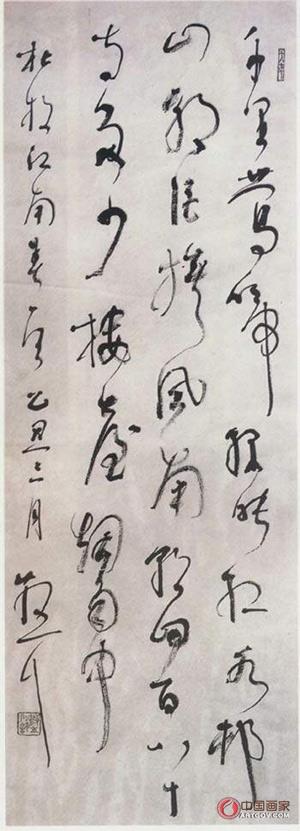 千里莺啼绿映红水村
山郭酒旗风南朝四百八十
寺多少楼台烟雨中
杜牧江南春一首乙丑三月
中国画家
ARTGOV.COM